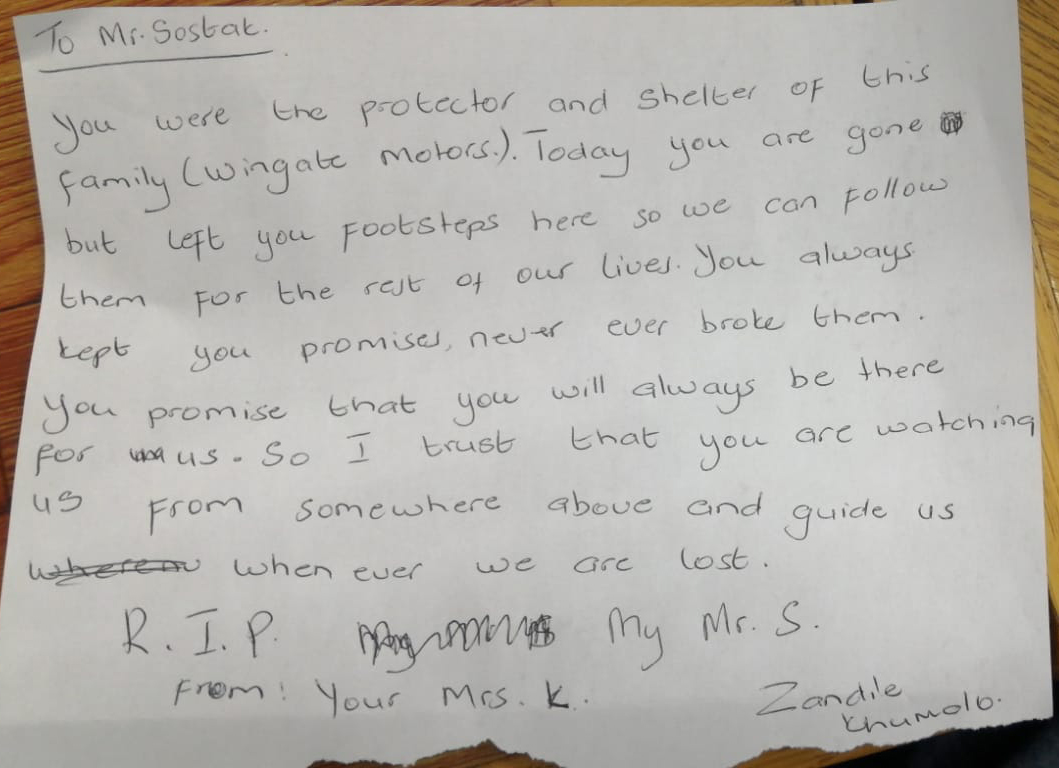 To Mr. Sostak.
You were the protector and shelter of this
family (Wingate Motors.). Today you are gone
but left you footsteps here so we can follow
them for the rest of our lives. You always
kept you promises, never ever broke them.
You promise that you will always be there
for us. So I trust that you are watching
us from somewhere above and guide us
when ever we are lost.
R.I.P. My Mr. S.
From: Your Mrs. K.
Zandile
Khumalo.